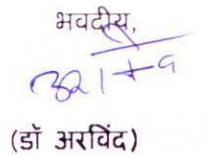 भवदीय,
(डॉ अरविंद)